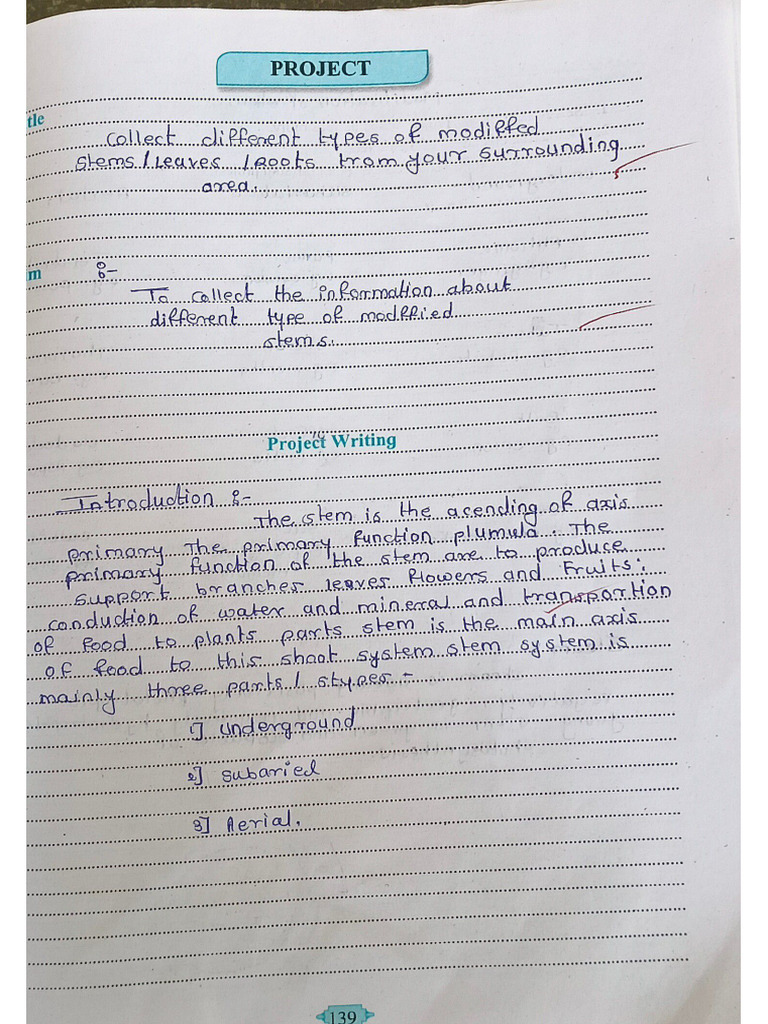 PROJECT
tle
Collect different types of modiffed
stems/Leaves/Roots from your surrounding
area.
m :-
To collect the information about
different type of modffied
stems.
Project Writing
Introduction :-
The stem is the acending of axis
primary The primary function plumula. The
primary function of the stem are to produce
support branches leaves flowers and fruits;
conduction of water and mineral and transportion
of food to plants parts stem is the main axis
of food to this shoot system stem system is
mainly three parts/stypes -
1] Underground
2] Subaried
3] Aerial.
139